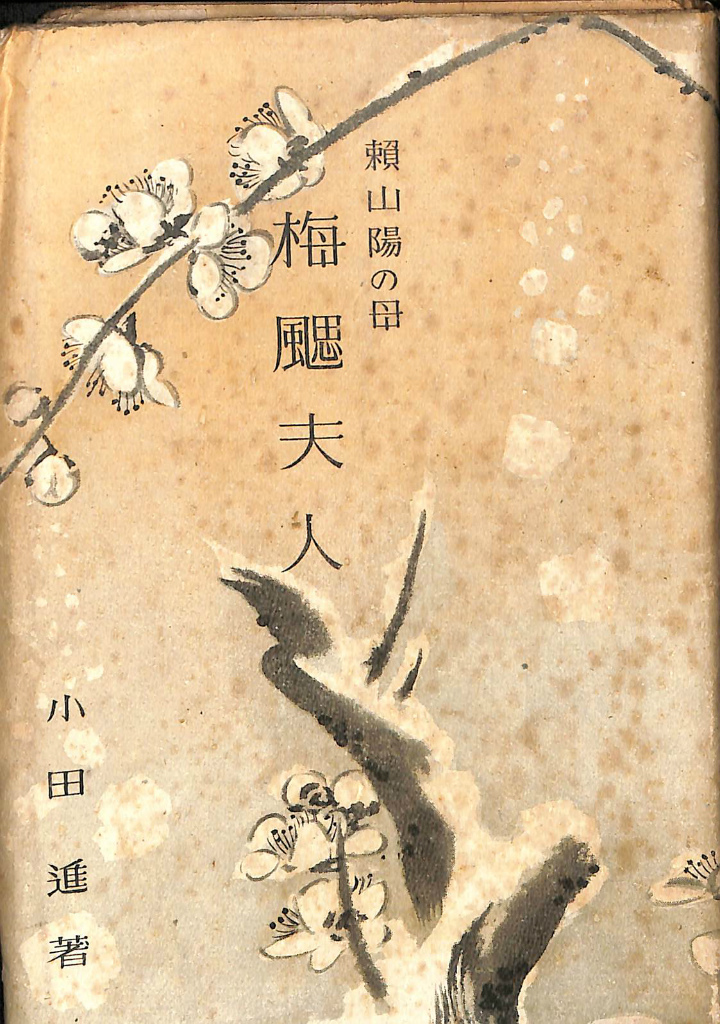 頼山陽の母
梅颸夫人
小田進著